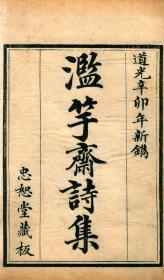 道光辛卯年新鐫
濫竽齋詩集
忠恕堂藏板